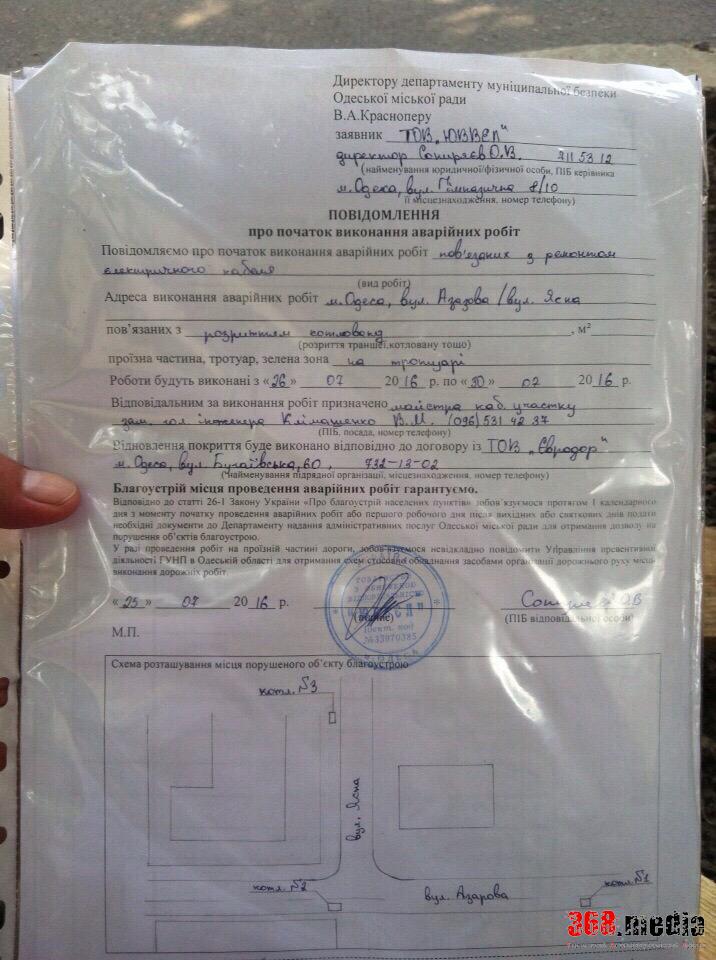 Директору департаменту муніципальної безпеки
Одеської міської ради
В.А.Красноперу
заявник ТОВ „ЮВВЕЛ"
директор О.В. 711 53 12
(найменування юридичної/фізичної особи, ПІБ керівника
м. Одеса, вул. Гімназична 8/10
її місцезнаходження, номер телефону)
ПОВІДОМЛЕННЯ
про початок виконання аварійних робіт
Повідомляємо про початок виконання аварійних робіт пов'язаних з ремонтом
електричного кабеля
(вид робіт)
Адреса виконання аварійних робіт м. Одеса, вул. Азарова / вул. Ясна
пов'язаних з розриттям котлованд , м²
(розриття траншеї,котловану тощо)
проїзна частина, тротуар, зелена зона на тротуарі
Роботи будуть виконані з «26» 07 2016 р. по «30» 07 2016 р.
Відповідальним за виконання робіт призначено майстра каб. участку
зам. гол. інженера Клімашенко В.М. (096) 531 42 37
(ПІБ, посада, номер телефону)
Відновлення покриття буде виконано відповідно до договору із ТОВ „Євродор"
м. Одеса, вул. Бугаївська, 60, 732-13-02
(найменування підрядної організації, місцезнаходження, номер телефону)
Благоустрій місця проведення аварійних робіт гарантуємо.
Відповідно до статті 26-1 Закону України «Про благоустрій населених пунктів» зобов'язуємося протягом 1 календарного
дня з моменту початку проведення аварійних робіт або першого робочого дня після вихідних або святкових днів подати
необхідні документи до Департаменту надання адміністративних послуг Одеської міської ради для отримання дозволу на
порушення об'єктів благоустрою.
У разі проведення робіт на проїзній частині дороги, зобов'язуємося невідкладно повідомити Управління превентивної
діяльності ГУНП в Одеській області для отримання схем стосовно обладнання засобами організації дорожнього руху місць
виконання дорожніх робіт.
«25» 07 2016 р.
(підпис)
(ПІБ відповідальної особи)
М.П.
ТОВАРИСТВО
З ОБМЕЖЕНОЮ
ВІДПОВІДАЛЬНІСТЮ
Ідент. код
№33970385
Схема розташування місця порушеного об'єкту благоустрою
котл. №3
вул. Ясна
котл. №2
вул. Азарова
котл. №1
368.media